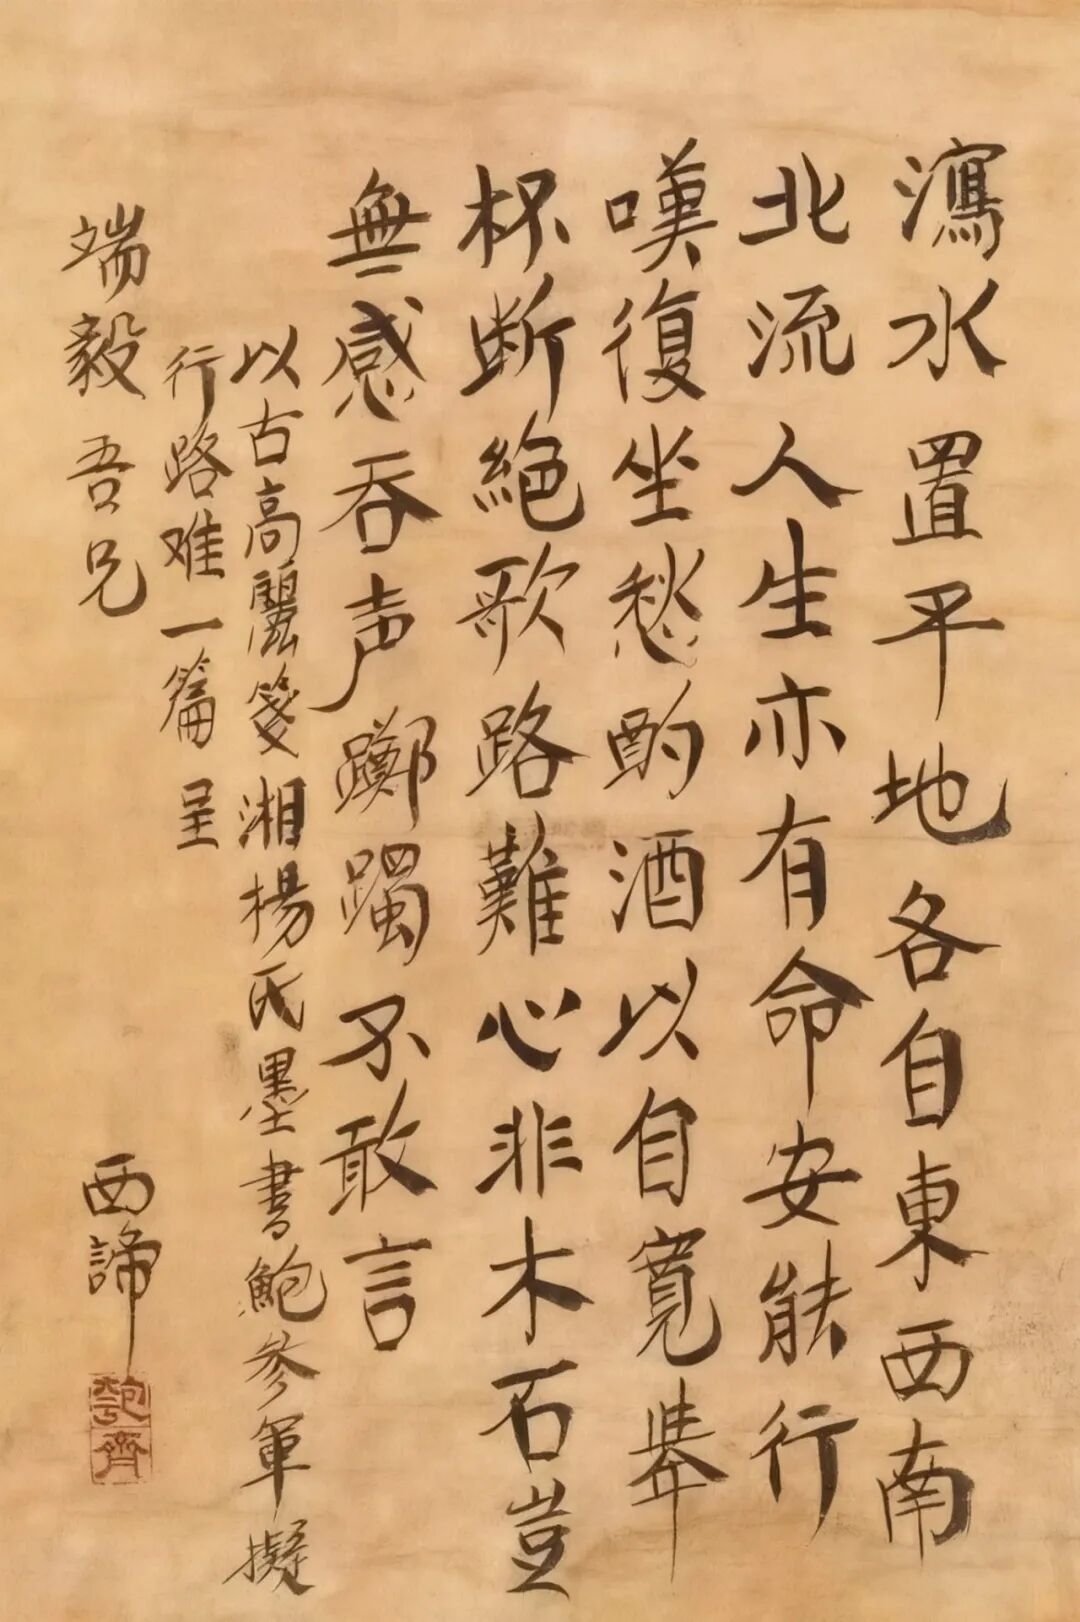 瀉水置平地各自東西南
北流人生亦有命安能行
嘆復坐愁酌酒以自寬舉
杯斷絕歌路難心非木石豈
無感吞声躑躅不敢言
以古高麗箋湘楊氏墨書鮑參軍擬
行路难一篇呈
端毅吾兄
西諦
匏齋